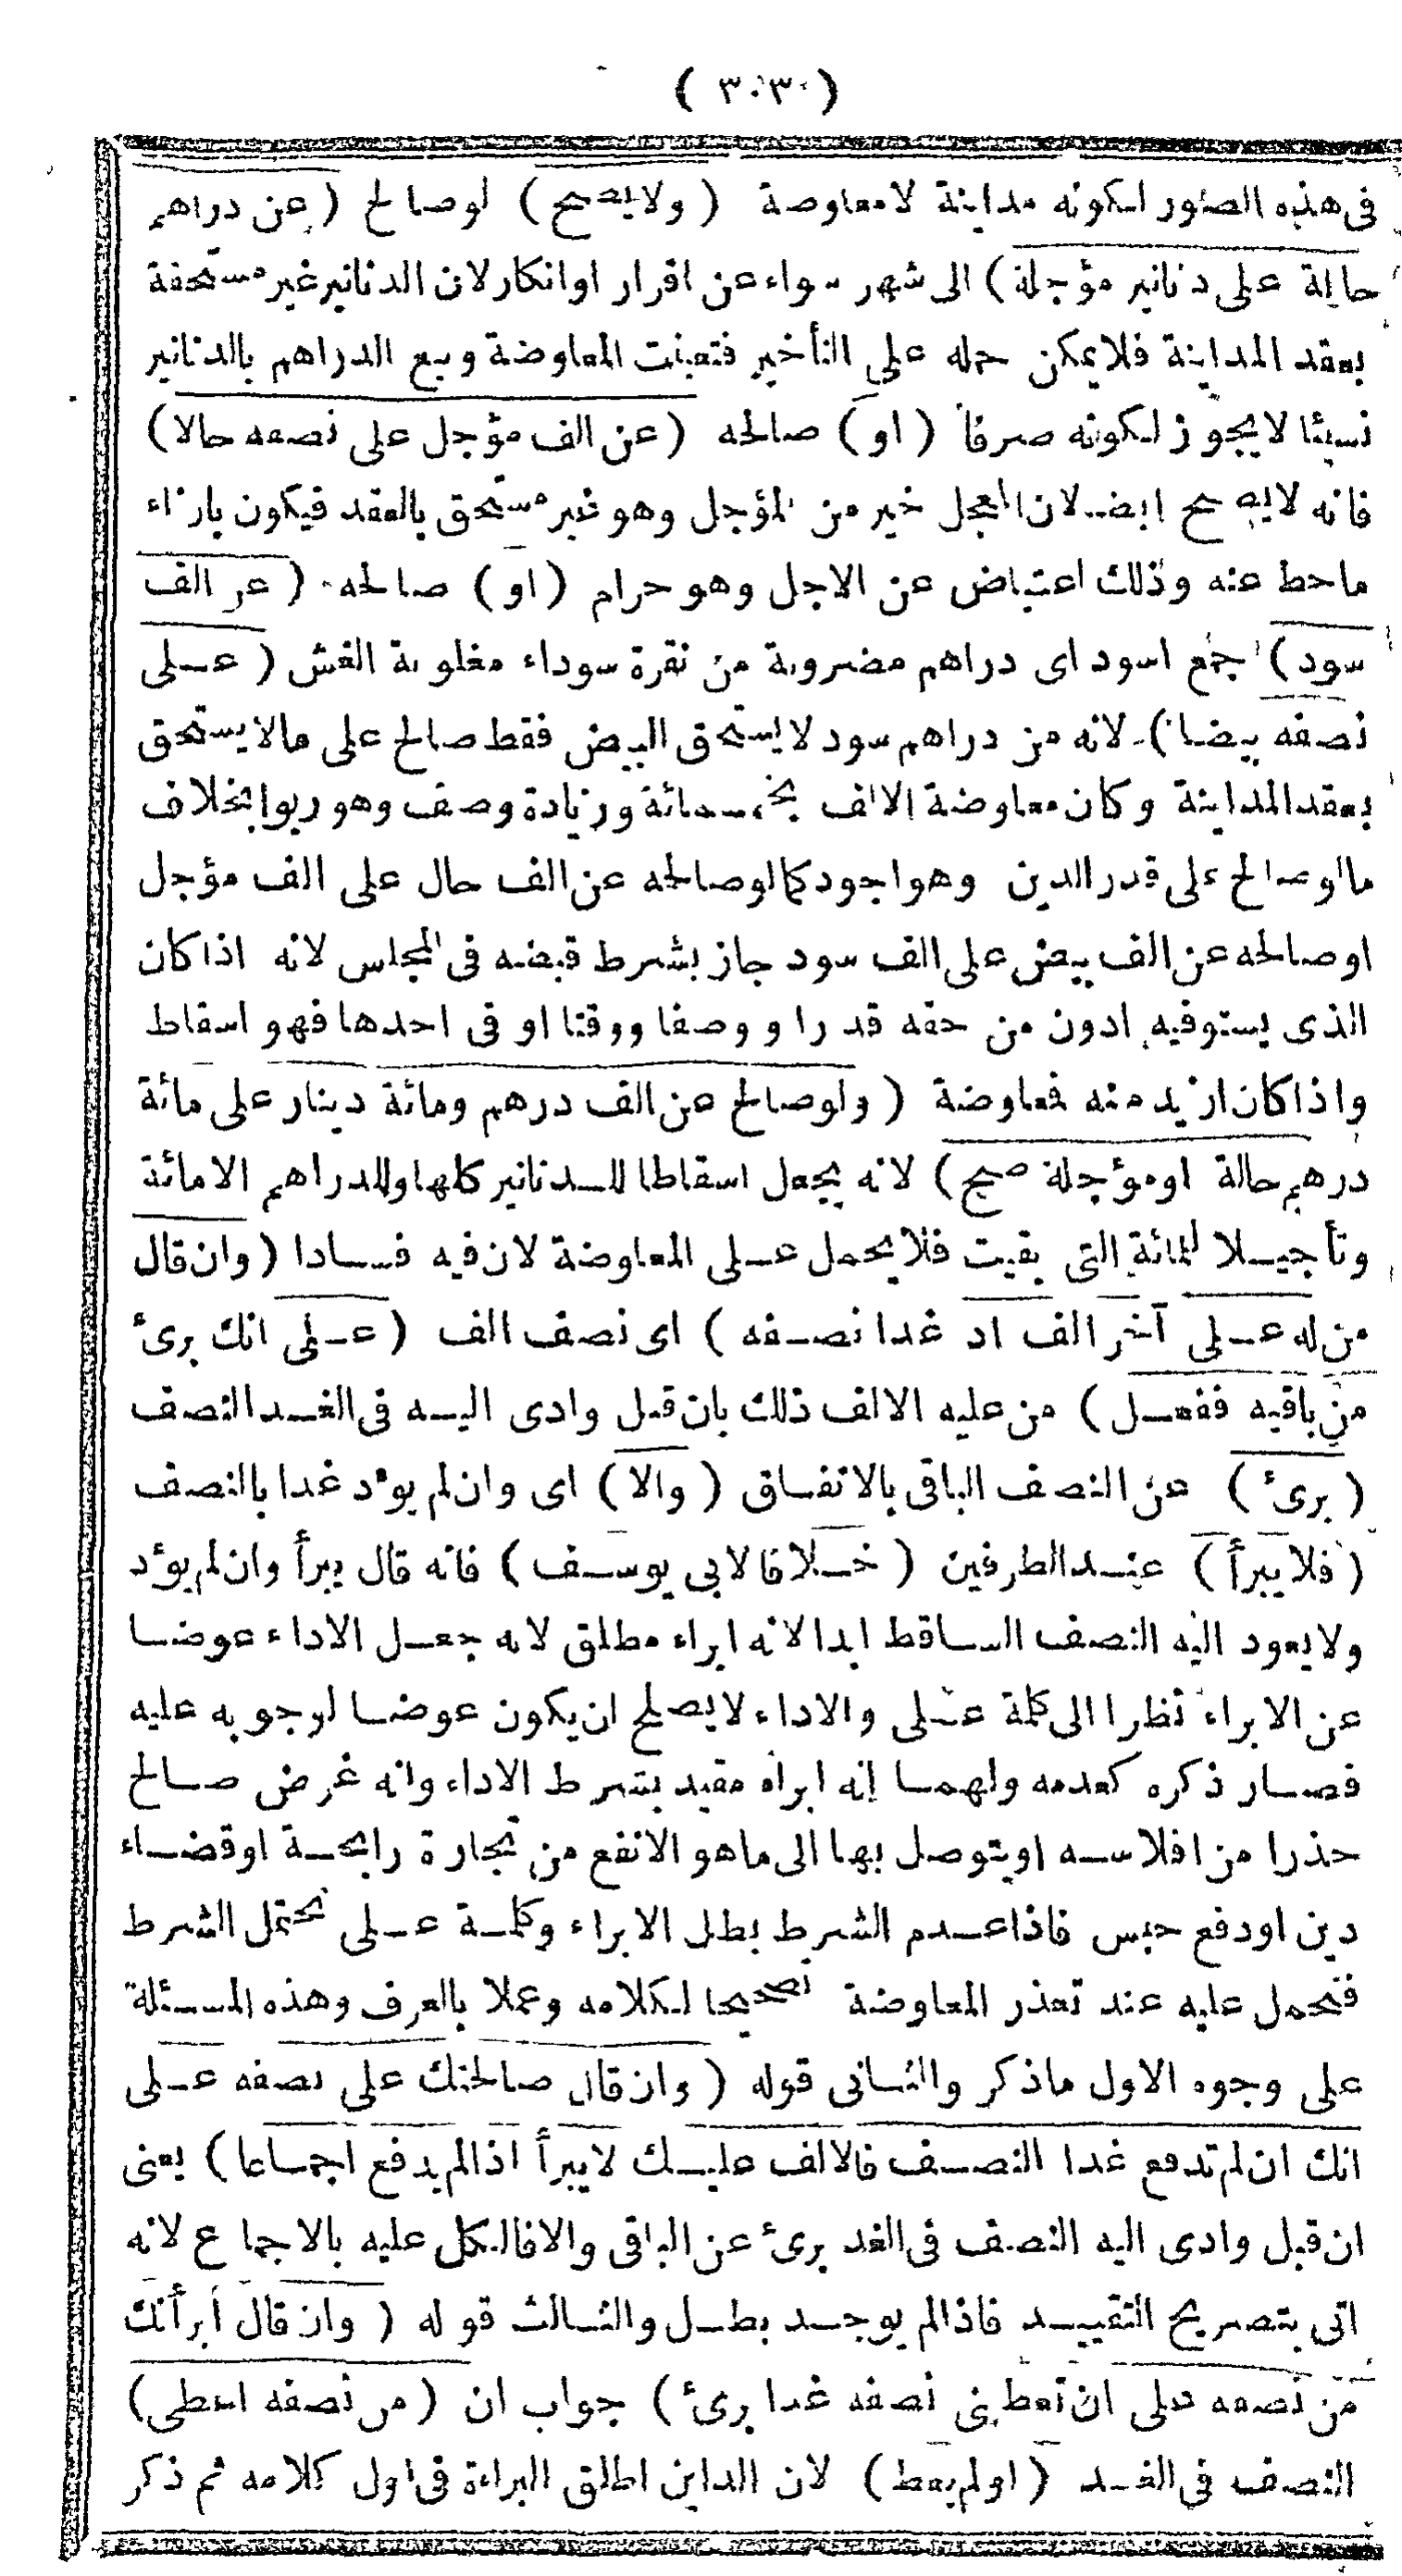 ( ٣٠٣ )
فى هذه الصور لكونه مداينة لا معاوضة ( ولا يصح ) لو صالح ( عن دراهم
حالة على دنانير مؤجلة ) الى شهر سواء عن اقرار او انكار لان الدنانير غير مستحقة
بعقد المداينة فلا يمكن حمله على التأخير فتعينت المعاوضة وبيع الدراهم بالدنانير
نسيئا لا يجوز لكونه صرفا ( او ) صالحه ( عن الف مؤجل على نصفه حالا )
فانه لا يصح ايضا لان المعجل خير من المؤجل وهو غير مستحق بالعقد فيكون بازاء
ما حط عنه وذلك اعتياض عن الاجل وهو حرام ( او ) صالحه ( عن الف
سود ) جمع اسود اى دراهم مضروبة من نقرة سوداء مغلوبة الغش ( على
نصفه بيضا ) لانه من دراهم سود لا يستحق البيض فقط صالح على ما لا يستحق
بعقد المداينة وكان معاوضة الالف بخمسمائة وزيادة وصف وهو ربوا بخلاف
ما لو صالح على قدر الدين وهو اجود كما لو صالحه عن الف حال على الف مؤجل
او صالحه عن الف بيض على الف سود جاز بشرط قبضه فى المجلس لانه اذا كان
الذى يستوفيه ادون من حقه قدرا و وصفا ووقتا او فى احدها فهو اسقاط
واذا كان ازيد منه فمعاوضة ( ولو صالح عن الف درهم ومائة دينار على مائة
درهم حالة او مؤجلة صح ) لانه يجعل اسقاطا للدنانير كلها وللدراهم الا مائة
وتأجيلا للمائة التى بقيت فلا يحمل على المعاوضة لان فيه فسادا ( وان قال
من له على آخر الف اد غدا نصفه ) اى نصف الف ( على انك برئ
من باقيه ففعل ) من عليه الالف ذلك بان قبل وادى اليه فى الغد النصف
( برئ ) عن النصف الباقى بالاتفاق ( والا ) اى وان لم يؤد غدا بالنصف
( فلا يبرأ ) عند الطرفين ( خلافا لابى يوسف ) فانه قال يبرأ وان لم يؤد
ولا يعود اليه النصف الساقط ابدا لانه ابراء مطلق لانه جعل الاداء عوضا
عن الابراء نظرا الى كلمة على والاداء لا يصلح ان يكون عوضا لوجوبه عليه
فصار ذكره كعدمه ولهما انه ابراء مقيد بشرط الاداء وانه غرض صالح
حذرا من افلاسه او يتوصل بها الى ما هو الانفع من تجارة رابحة او قضاء
دين او دفع حبس فاذا عدم الشرط بطل الابراء وكلمة على تحتمل الشرط
فتحمل عليه عند تعذر المعاوضة تصحيحا لكلامه وعملا بالعرف وهذه المسئلة
على وجوه الاول ما ذكر والثانى قوله ( وان قال صالحتك على نصفه على
انك ان لم تدفع غدا النصف فالالف عليك لا يبرأ اذا لم يدفع اجماعا ) يعنى
ان قبل وادى اليه النصف فى الغد برئ عن الباقى والا فالكل عليه بالاجماع لانه
اتى بتصريح التقييد فاذا لم يوجد بطل والثالث قوله ( وان قال أبرأتك
من نصفه على ان تعطينى نصفه غدا برئ ) جواب ان ( من نصفه اعطى )
النصف فى الغد ( او لم يعط ) لان الداين اطلق البراءة فى اول كلامه ثم ذكر